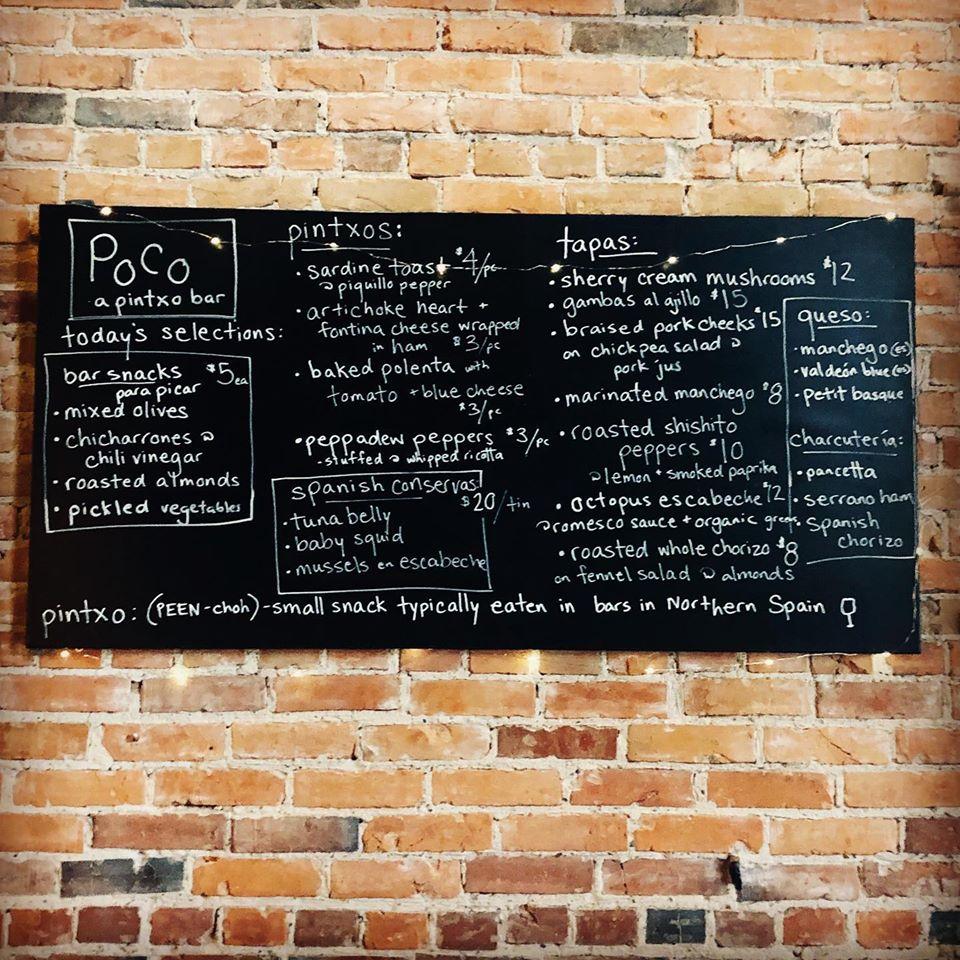 Poco
a pintxo bar
today's selections:
bar snacks $5 ea
para picar
• mixed olives
• chicharrones w
chili vinegar
• roasted almonds
• pickled vegetables
pintxos:
• sardine toast $4/pc
w piquillo pepper
• artichoke heart +
fontina cheese wrapped
in ham $3/pc
• baked polenta with
tomato + blue cheese
$3/pc
• peppadew peppers $3/pc
- stuffed w whipped ricotta
spanish conservas:
$20/tin
• tuna belly
• baby squid
• mussels en escabeche
tapas:
• sherry cream mushrooms $12
• gambas al ajillo $15
• braised pork cheeks $15
on chickpea salad w
pork jus
• marinated manchego $8
• roasted shishito
peppers $10
w lemon + smoked paprika
• octopus escabeche $12
w romesco sauce + organic greens
• roasted whole chorizo $8
on fennel salad w almonds
queso:
• manchego (es)
• valdeón blue (es)
• petit basque
charcutería:
• pancetta
• serrano ham
• Spanish
chorizo
pintxo: (PEEN-choh) - small snack typically eaten in bars in Northern Spain